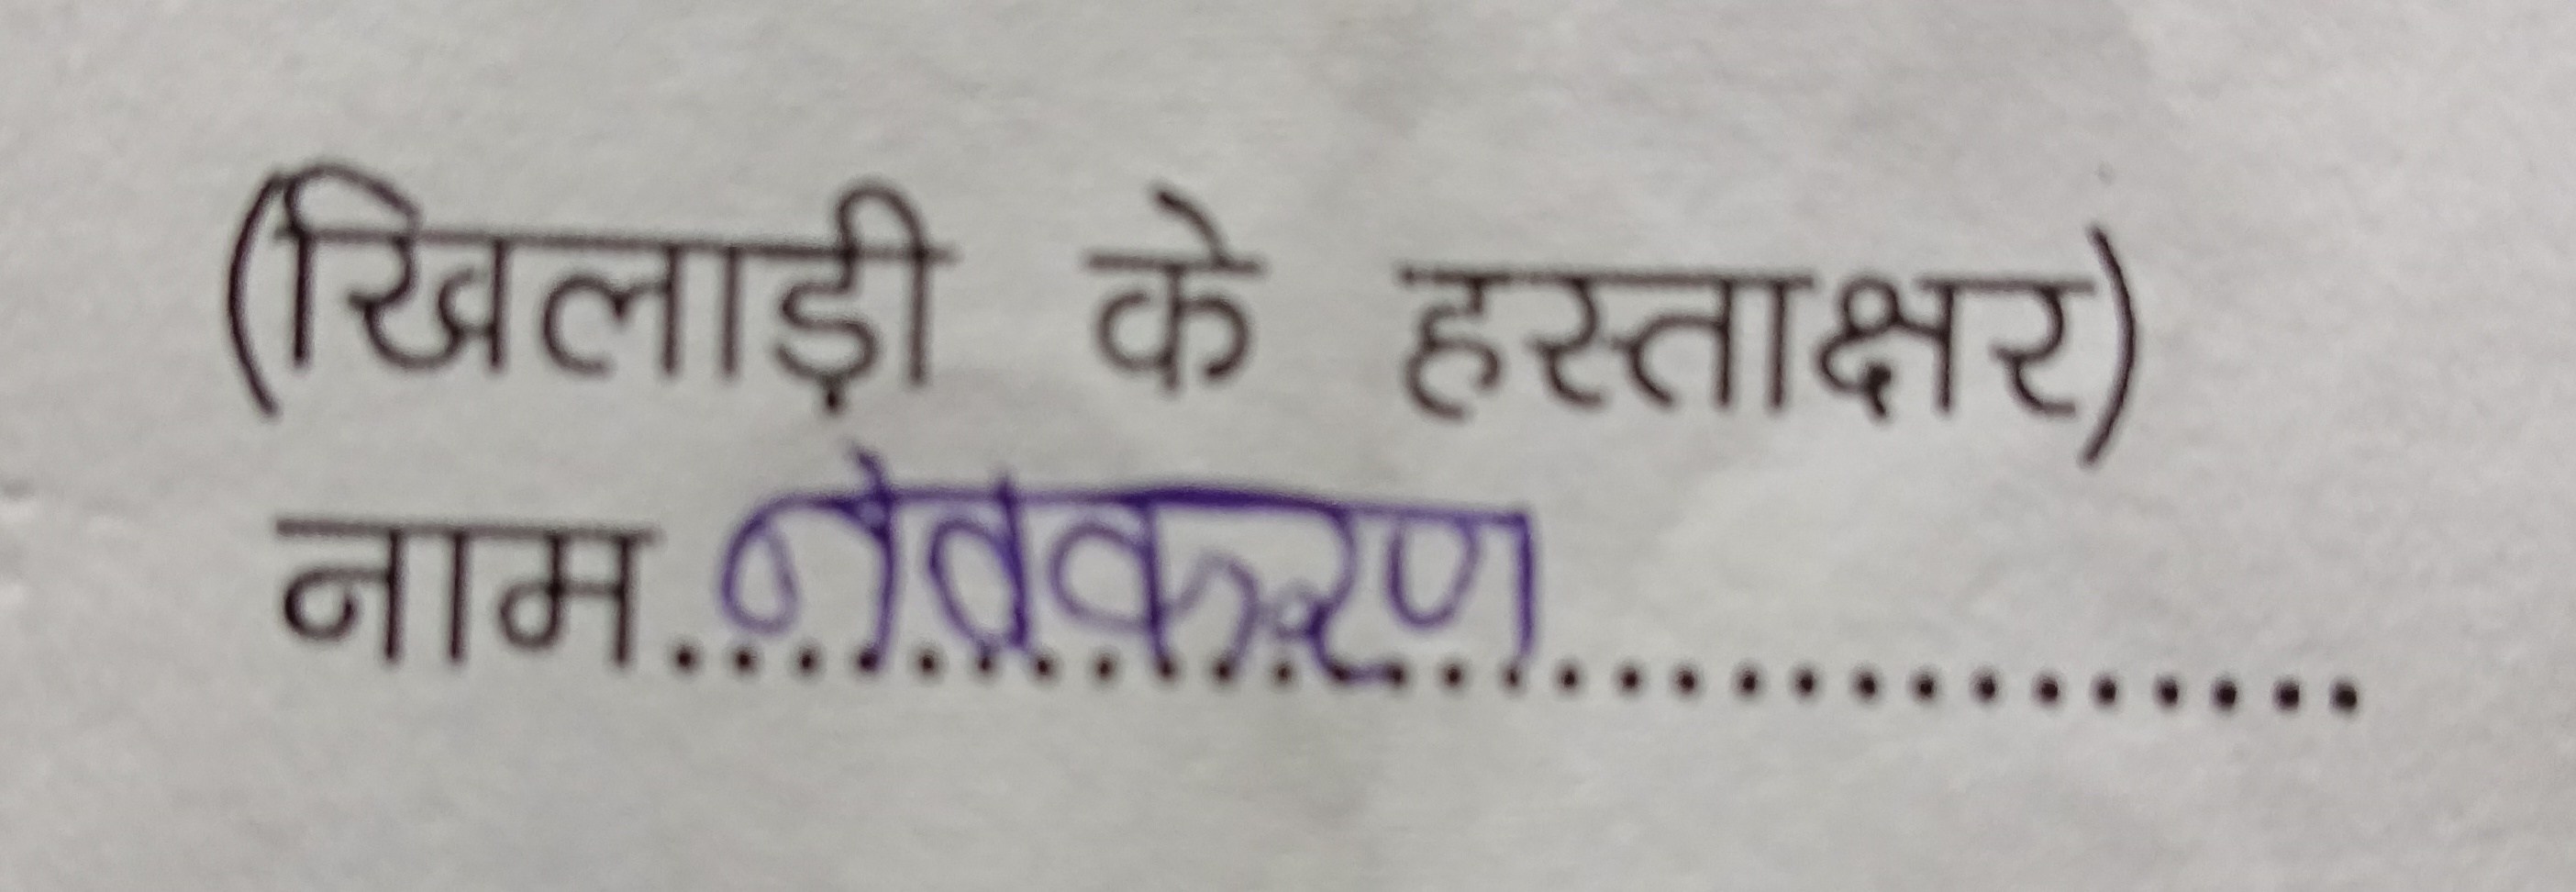 (खिलाड़ी के हस्ताक्षर)
नाम नवकरण